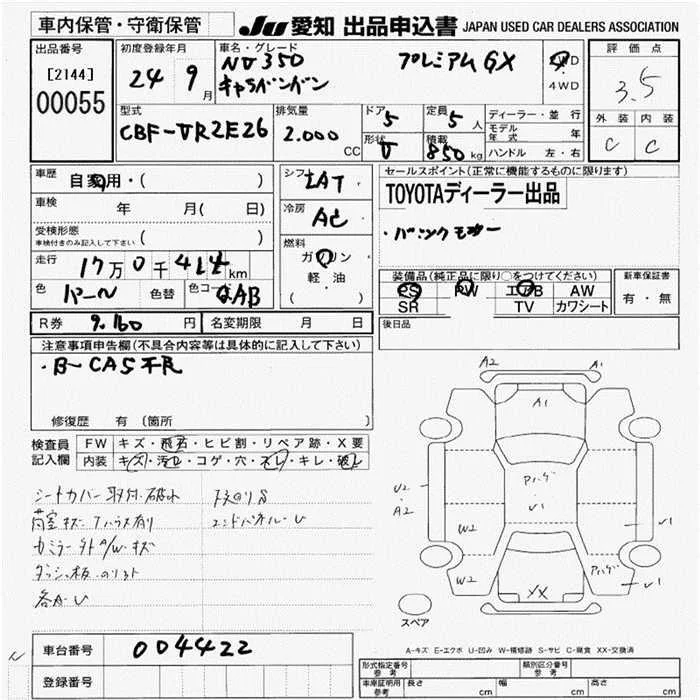 車内保管・守衛保管
JU 愛知 出品申込書 JAPAN USED CAR DEALERS ASSOCIATION
出品番号 初度登録年月 車名・グレード 評価点
[2144] 24 9月 NV350 プレミアムGX 2WD 3.5
00055 キャラバンバン 4WD
型式 排気量 ドア 定員 ディーラー・並行 外装 内装
CBF-VR2E26 2.000 CC 5 5人 モデル年式 年 C C
形状 V 積載 850kg ハンドル 左・右
車歴 自家用・( ) シフト LAT セールスポイント(正常に機能するものに限ります)
車検 年 月( 日) 冷房 AC TOYOTAディーラー出品
受検形態
車検付きのみ記入して下さい ( ) 燃料 ガソリン ・バックモニター
走行 17万0千414km 軽・油
色 パール 色替 色コード QAB ( ) 装備品(純正品に限り○をつけてください) 新車保証書
PS PW エアB AW 有・無
SR TV カワシート
R券 9.160円 名変期限 月 日 後日品
注意事項申告欄(不具合内容等は具体的に記入して下さい)
・B-CAS不良
修復歴 有 (箇所 )
検査員 FW キズ・飛石・ヒビ割・リペア跡・X要
記入欄 内装 キズ・汚レ・コゲ・穴・スレ・キレ・破レ
シートカバー取付・破れ 下廻りS
荷室キズ エンドパネルU
ダッシュ板
各AU
A2 A1
A1
U2 A2
W2
W2
XX
アハゲ
U1
U1
U1
スペア
A-キズ E-エクボ U-凹み W-補修跡 S-サビ C-腐食 XX-交換済
車台番号 004422
登録番号
形式指定番号 参考 類別区分番号 参考
車庫証明用 参考 長さ cm 幅 cm 高さ cm